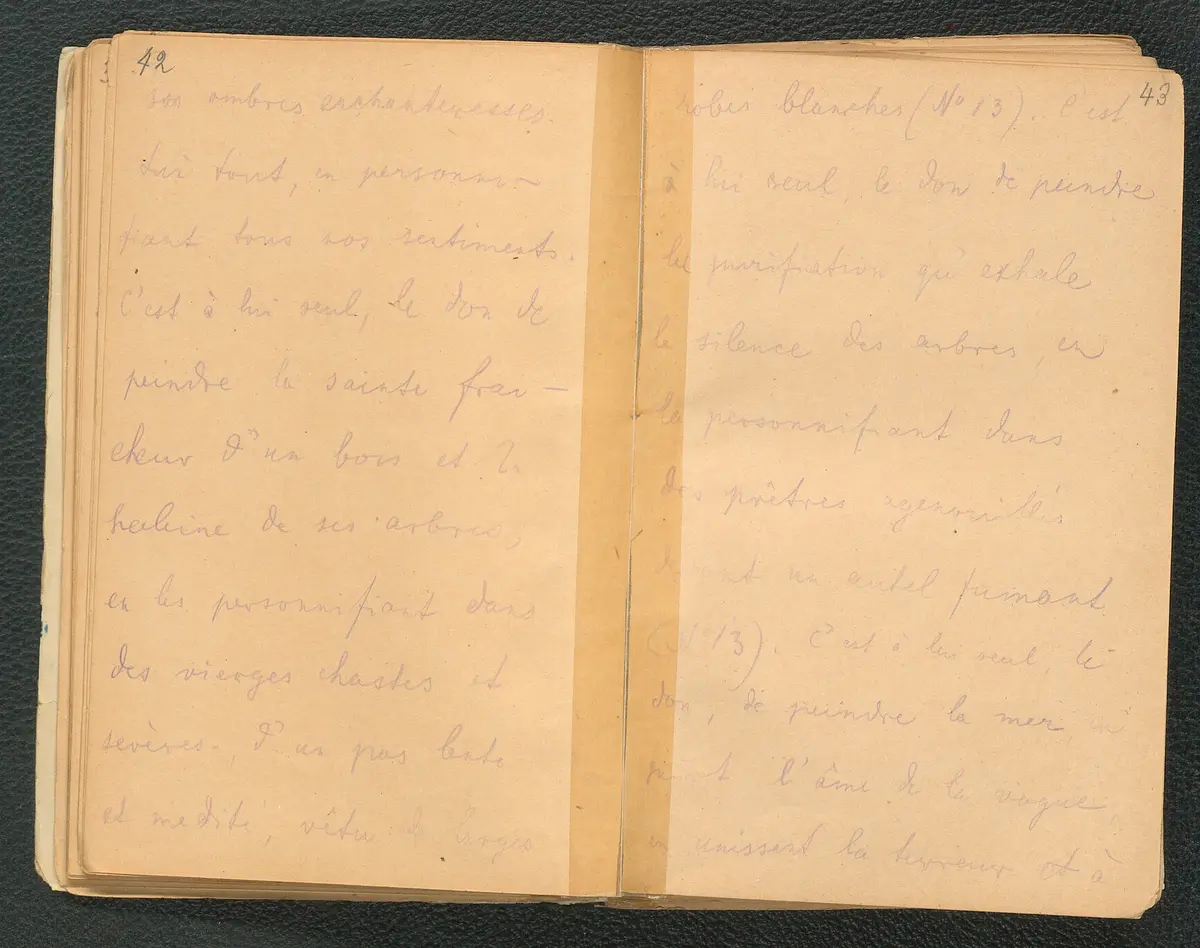 42
son ombres enchanteresses.
tout, en personni-
fiant tous nos sentiments.
C'est à lui seul, le don de
peindre la sainte frai-
cheur d'un bois et
haleine de ses arbres,
en les personnifiant dans
des vierges chastes et
sevères, d'un pas lents
et medité, vêtu larges
43
robes blanches (No 13). C'est
à lui seul, le don de peindre
la purification qu'exhale
le silence des arbres, en
la personnifiant dans
des prêtres agenouillés
devant un autel fumant.
(No 13). C'est à lui seul, le
don, de peindre la mer, en
l'âme de la vague,
en unissant la terreur et à